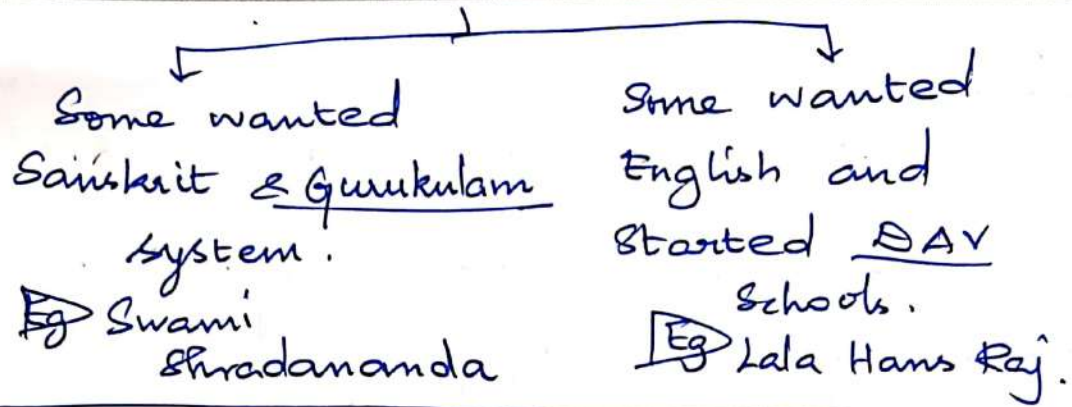 Some wanted
Sanskrit & Gurukulam
system.
Eg Swami
Shradananda
Some wanted
English and
Started DAV
Schools.
Eg Lala Hans Raj.